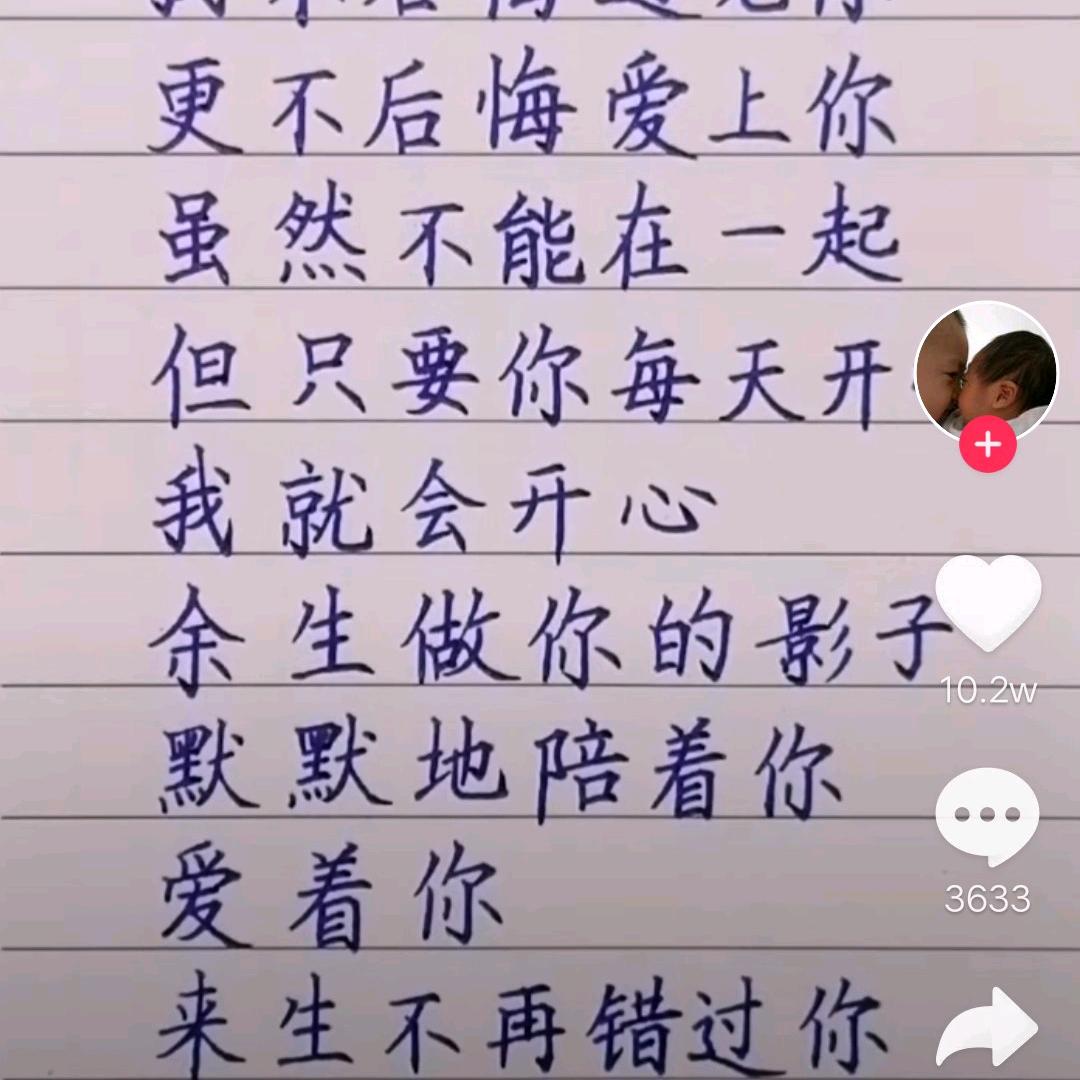 我不后悔遇见你
更不后悔爱上你
虽然不能在一起
但只要你每天开
我就会开心
余生做你的影子
默默地陪着你
爱着你
来生不再错过你
10.2w
3633